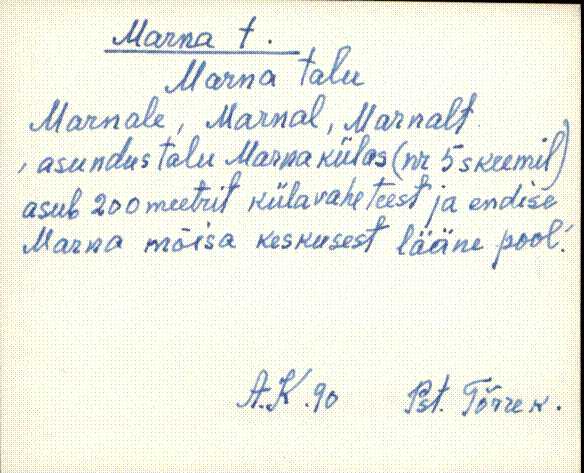 Marna t.
Marna talu
Marnale, Marnal, Marnalt
, asundustalu Marna külas (nr 5 skeemil)
asub 200 meetrit külavaheteest ja endise
Marna mõisa keskusest lääne pool.'
A.K. 90 Pst. Tõrrek.